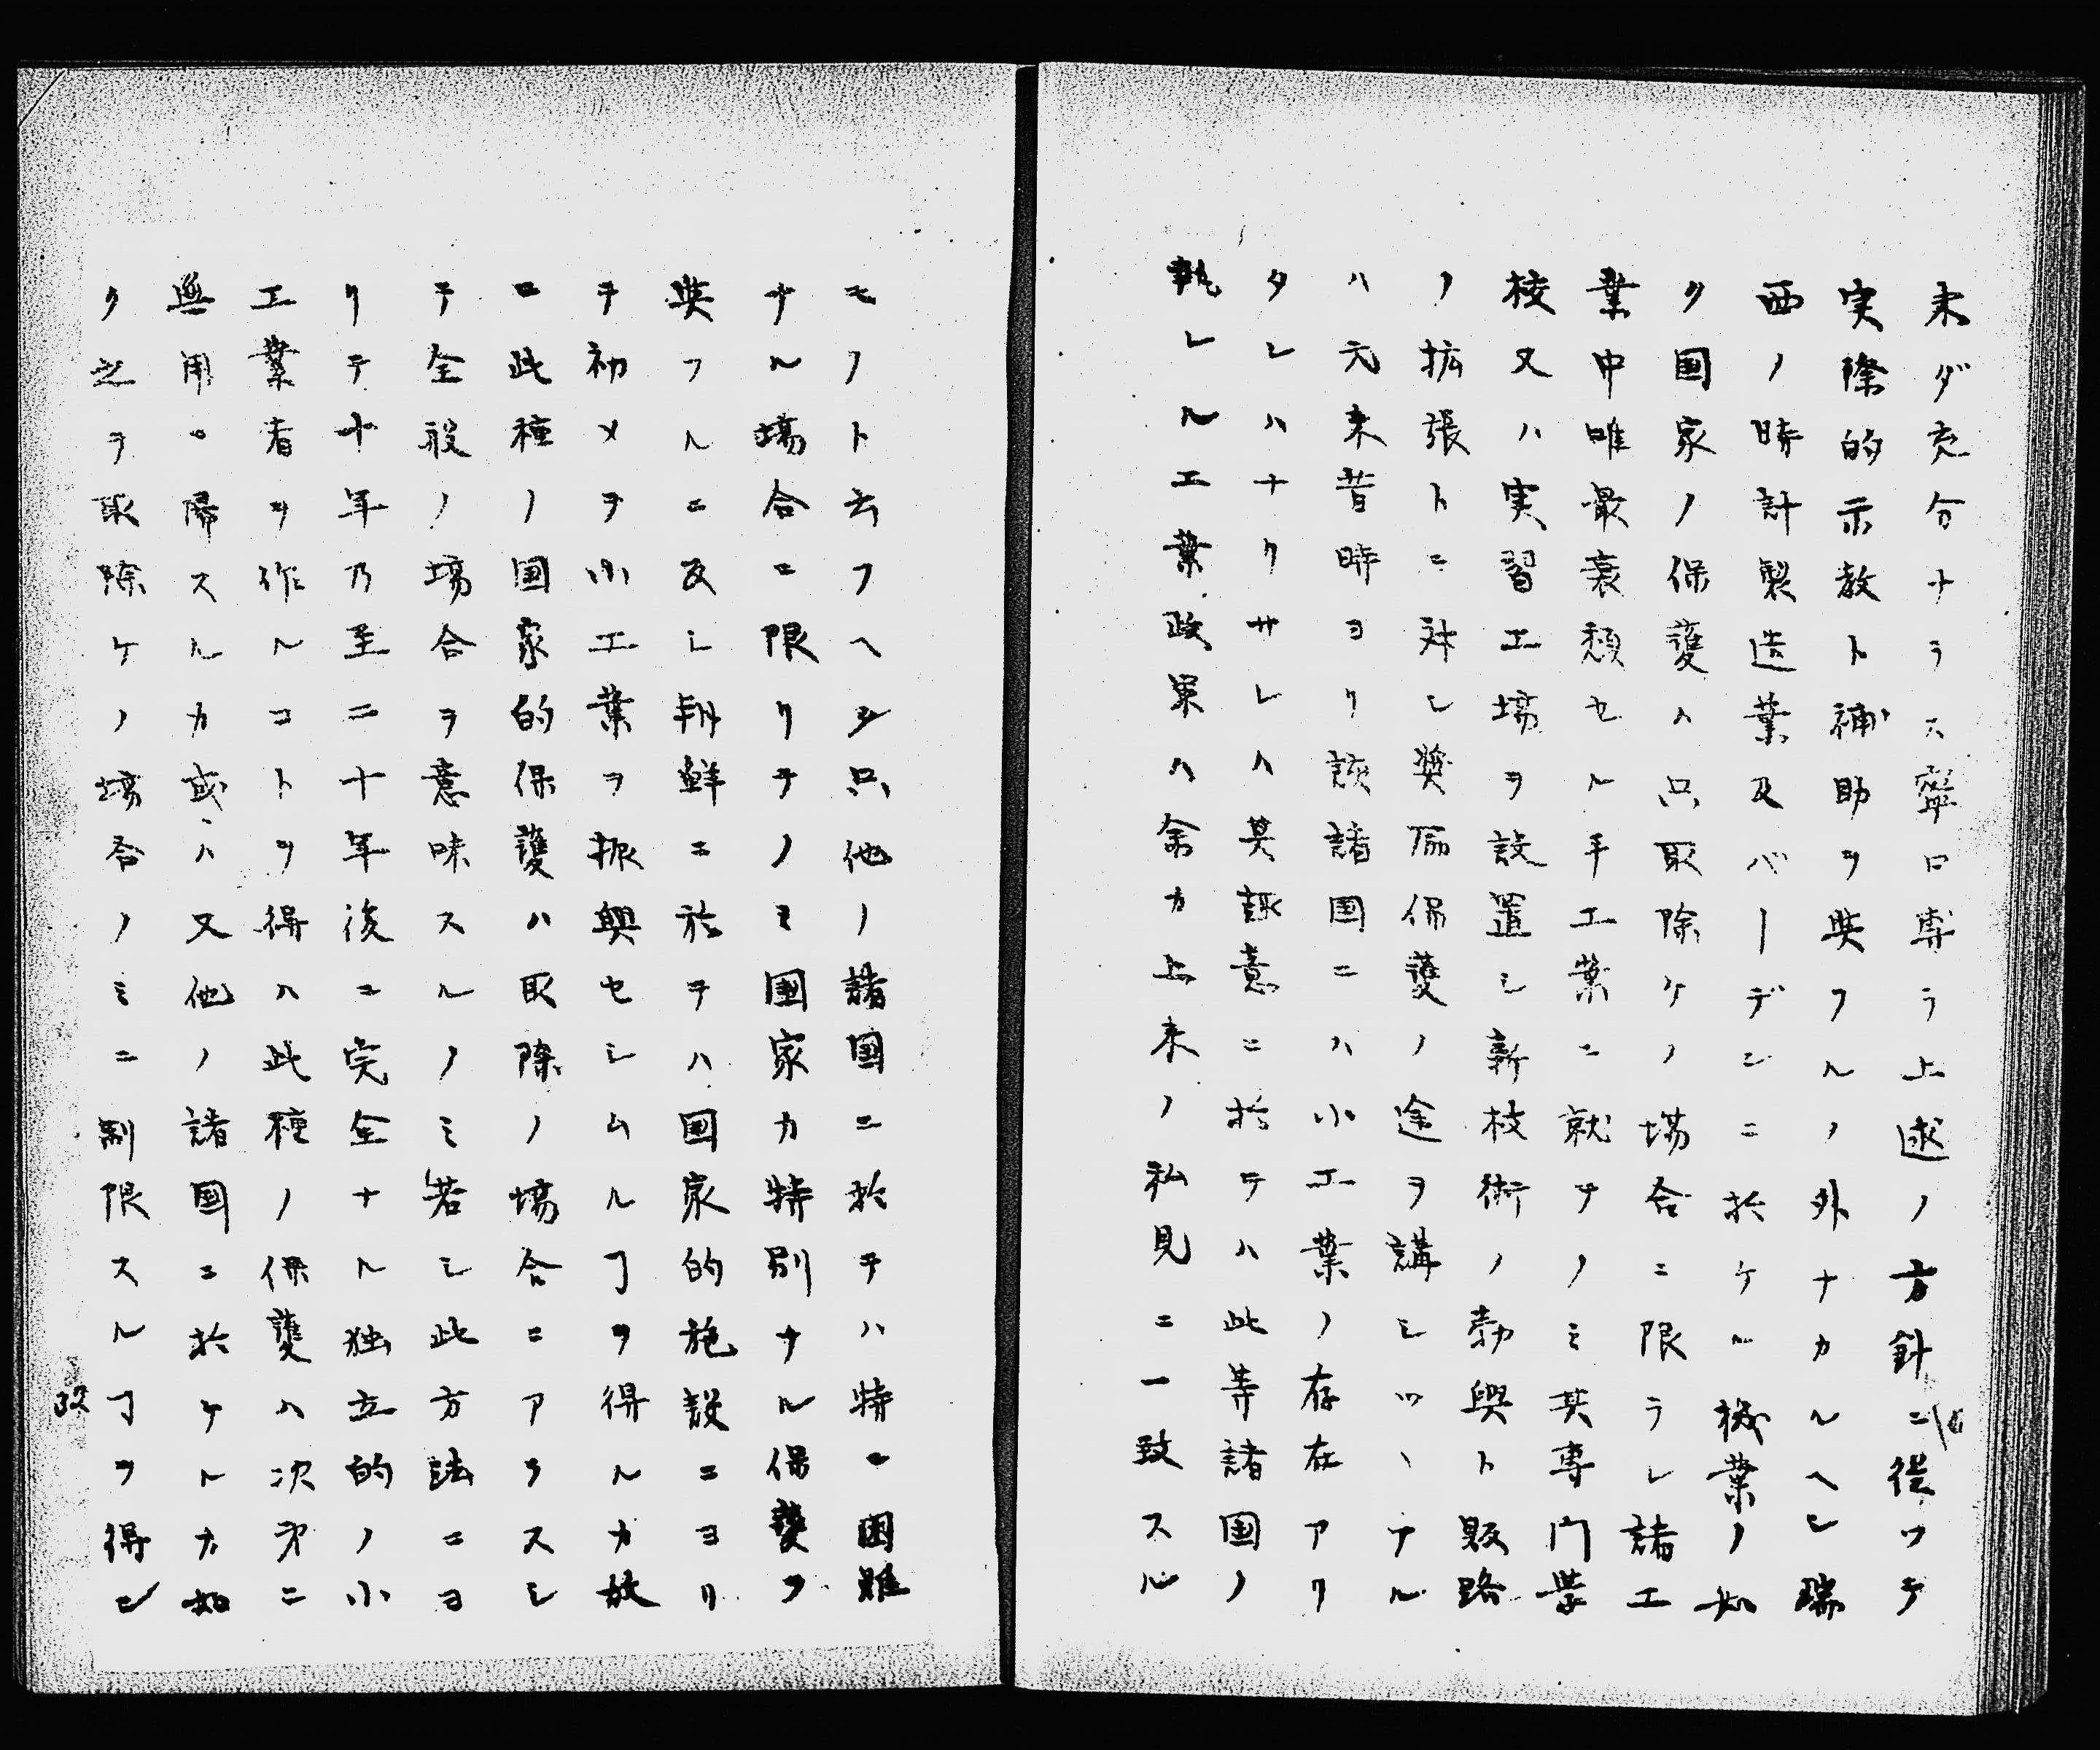 未ダ充分ナラス寧ロ専ラ上述ノ方針ニ従ツテ
実際的示教ト補助ヲ与フルノ外ナカルヘシ瑞
西ノ時計製造業及バーデンニ於ケル機業ノ如
ク国家ノ保護ハ只取除ケノ場合ニ限ラレ諸工
業中唯最衰頽セル手工業ニ就テノミ其専門学
校又ハ実習工場ヲ設置シ新技術ノ勃興ト販路
ノ拡張トニ対シ奨励保護ノ途ヲ講シツヽアル
ハ元来昔時ヨリ該諸国ニハ小工業ノ存在アリ
タレハナリサレハ其趣意ニ於テハ此等諸国ノ
執レル工業政策ハ余カ上来ノ私見ニ一致スル
モノト云フヘシ只他ノ諸国ニ於テハ特ニ困難
ナル場合ニ限リテノミ国家カ特別ナル保護ヲ
与フルニ反シ朝鮮ニ於テハ国家的施設ニヨリ
テ初メヲ小工業ヲ振興セシムルヿヲ得ルカ故
ニ此種ノ国家的保護ハ取除ノ場合ニアラスシ
テ全般ノ場合ヲ意味スルノミ若シ此方法ニヨ
リテ十年乃至二十年後ニ完全ナル独立的ノ小
工業者ヲ作ルコトヲ得ハ此種ノ保護ハ次第ニ
無用ニ帰スルカ或ハ又他ノ諸国ニ於ケルカ如
ク之ヲ取除ケノ場合ノミニ制限スルヿヲ得ン